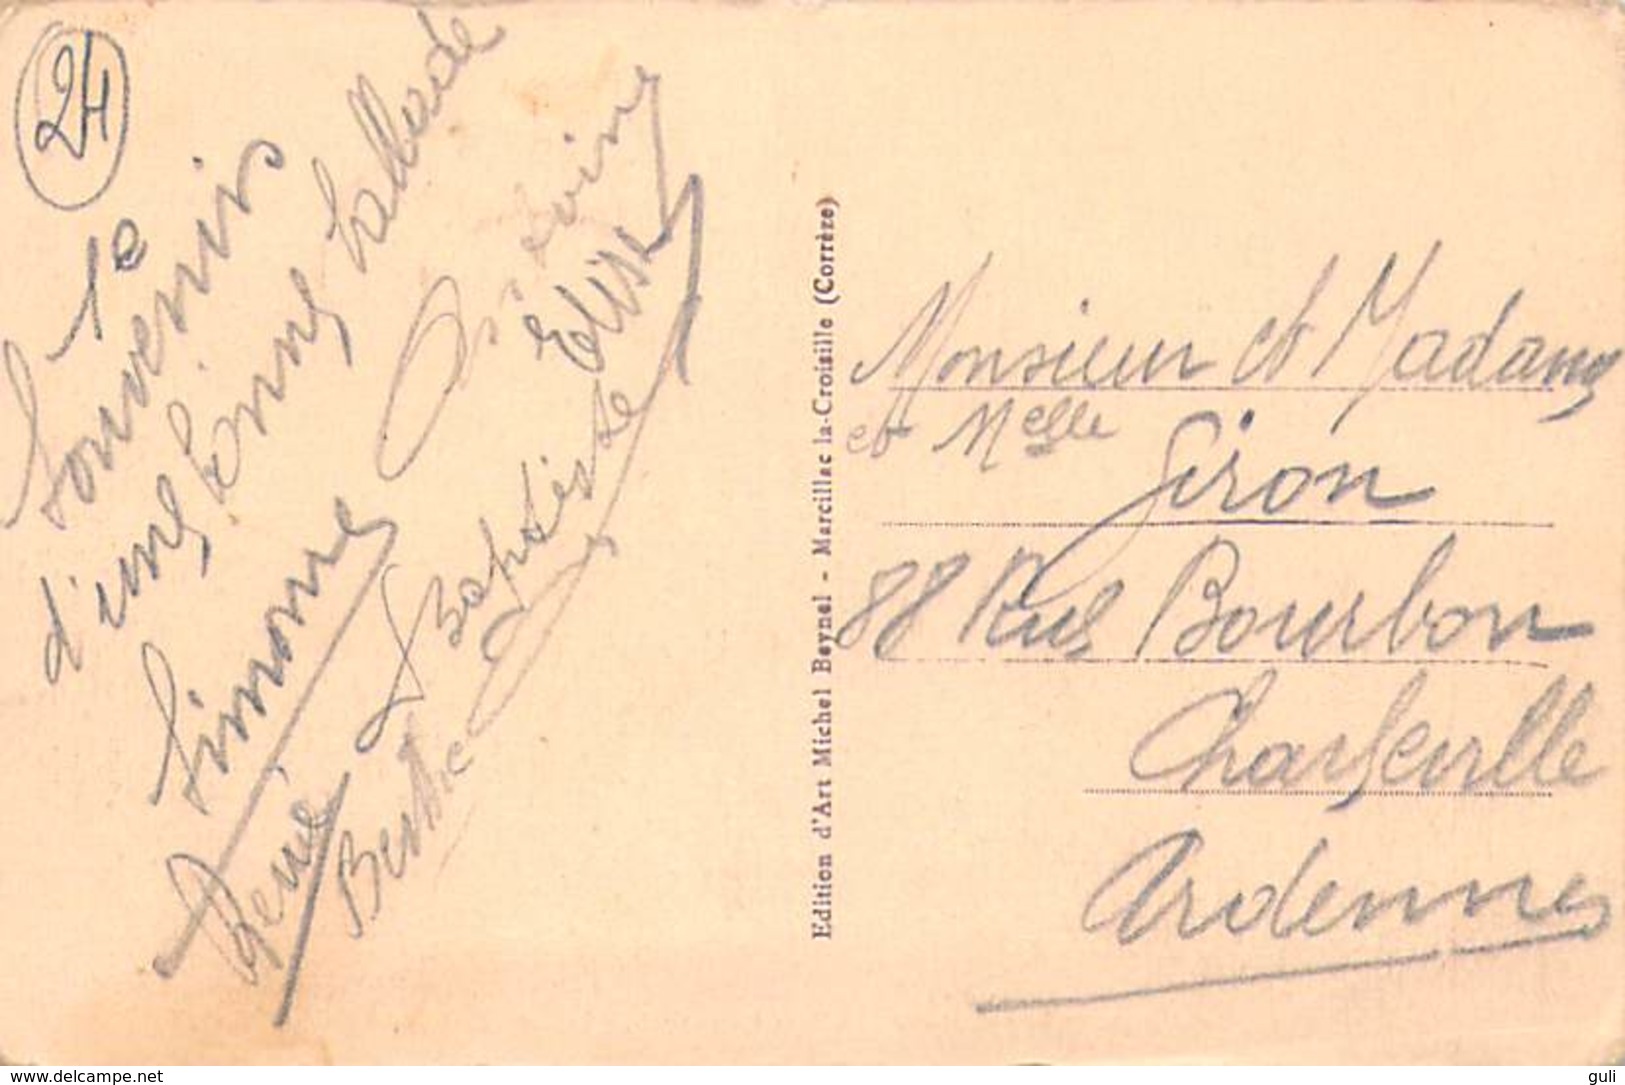 24
1e
Souvenirs
d'une bonne ballade
Simone
René
Baptiste
Berthe
Elise
Edition d'Art Michel Beynel - Marcillac la-Croisille (Corrèze)
Monsieur et Madame
et Melle
Giron
88 Rue Bourbon
Charleville
Ardennes
www.delcampe.net
guli